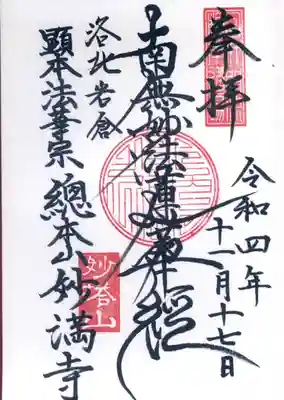 奉拝
令和四年
十一月十七日
南無妙法蓮華経
洛北岩倉
顕本法華宗 總本山妙満寺
妙塔山